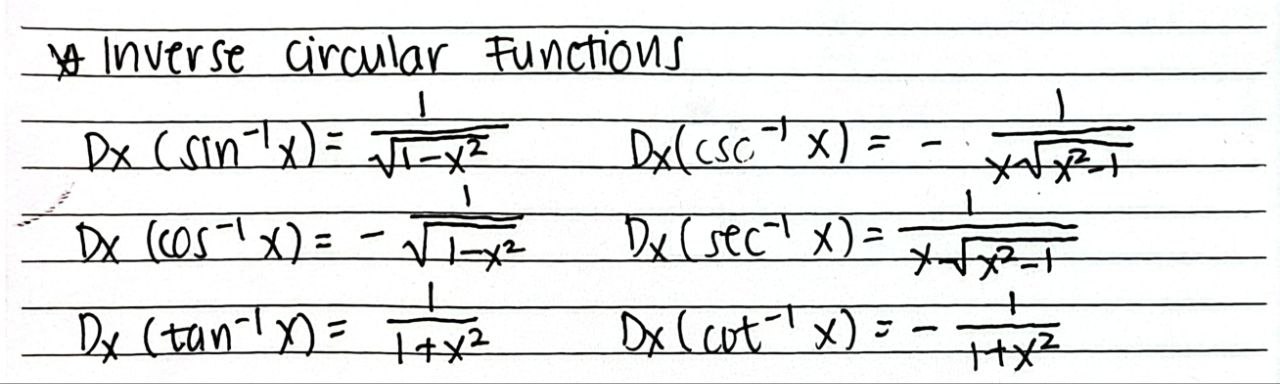 * Inverse Circular Functions
Dx (sin⁻¹x) = 1/√(1-x²)    Dx(csc⁻¹ x) = - 1/(x√(x²-1))
Dx (cos⁻¹ x) = - 1/√(1-x²)    Dx (sec⁻¹ x) = 1/(x√(x²-1))
Dx (tan⁻¹ x) = 1/(1+x²)    Dx (cot⁻¹ x) = - 1/(1+x²)